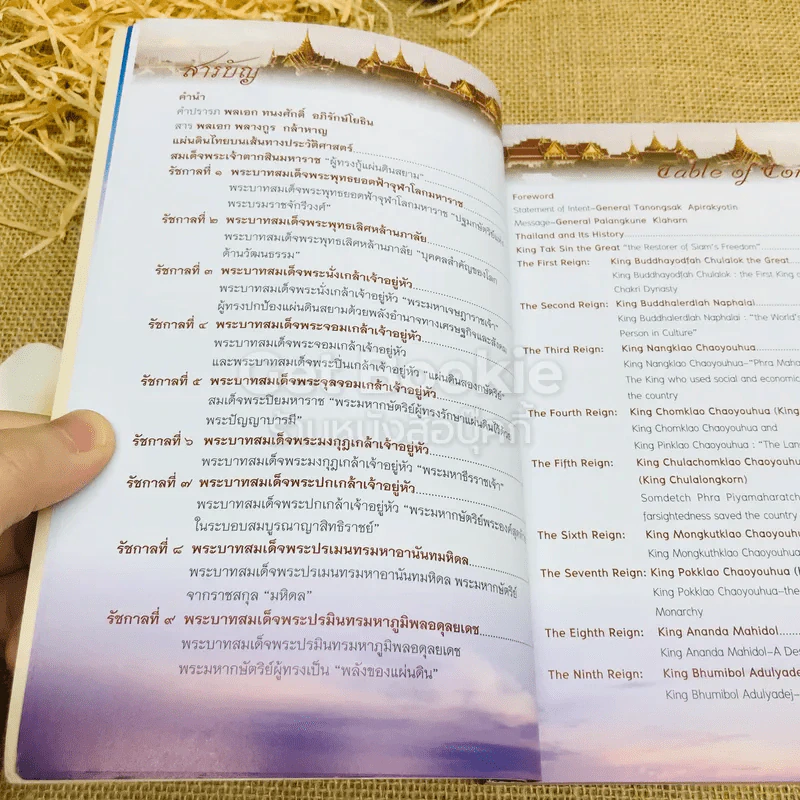 สารบัญ
คำนำ
คำปรารภ พลเอก ทนงศักดิ์ อภิรักษ์โยธิน
สาร พลเอก พลางกูร กล้าหาญ
แผ่นดินไทยบนเส้นทางประวัติศาสตร์
สมเด็จพระเจ้าตากสินมหาราช "ผู้ทรงกู้แผ่นดินสยาม"
รัชกาลที่ ๑ พระบาทสมเด็จพระพุทธยอดฟ้าจุฬาโลกมหาราช
พระบาทสมเด็จพระพุทธยอดฟ้าจุฬาโลกมหาราช "ปฐมกษัตริย์แห่ง
พระบรมราชจักรีวงศ์"
รัชกาลที่ ๒ พระบาทสมเด็จพระพุทธเลิศหล้านภาลัย
พระบาทสมเด็จพระพุทธเลิศหล้านภาลัย "บุคคลสำคัญของโลก
ด้านวัฒนธรรม"
รัชกาลที่ ๓ พระบาทสมเด็จพระนั่งเกล้าเจ้าอยู่หัว
พระบาทสมเด็จพระนั่งเกล้าเจ้าอยู่หัว "พระมหาเจษฎาราชเจ้า"
ผู้ทรงปกป้องแผ่นดินสยามด้วยพลังอำนาจทางเศรษฐกิจและสังคม
รัชกาลที่ ๔ พระบาทสมเด็จพระจอมเกล้าเจ้าอยู่หัว
พระบาทสมเด็จพระจอมเกล้าเจ้าอยู่หัว
และพระบาทสมเด็จพระปิ่นเกล้าเจ้าอยู่หัว "แผ่นดินสองกษัตริย์"
รัชกาลที่ ๕ พระบาทสมเด็จพระจุลจอมเกล้าเจ้าอยู่หัว
สมเด็จพระปิยมหาราช "พระมหากษัตริย์ผู้ทรงรักษาแผ่นดินไว้ด้วย
พระปัญญาบารมี"
รัชกาลที่ ๖ พระบาทสมเด็จพระมงกุฎเกล้าเจ้าอยู่หัว
พระบาทสมเด็จพระมงกุฎเกล้าเจ้าอยู่หัว "พระมหาธีรราชเจ้า"
รัชกาลที่ ๗ พระบาทสมเด็จพระปกเกล้าเจ้าอยู่หัว
พระบาทสมเด็จพระปกเกล้าเจ้าอยู่หัว "พระมหากษัตริย์พระองค์สุดท้าย
ในระบอบสมบูรณาญาสิทธิราชย์"
รัชกาลที่ ๘ พระบาทสมเด็จพระปรเมนทรมหาอานันทมหิดล
พระบาทสมเด็จพระปรเมนทรมหาอานันทมหิดล พระมหากษัตริย์
จากราชสกุล "มหิดล"
รัชกาลที่ ๙ พระบาทสมเด็จพระปรมินทรมหาภูมิพลอดุลยเดช
พระบาทสมเด็จพระปรมินทรมหาภูมิพลอดุลยเดช
พระมหากษัตริย์ผู้ทรงเป็น "พลังของแผ่นดิน"
Table of Con
Foreword
Statement of Intent-General Tanongsak Apirakyotin
Message-General Palangkune Klaharn
Thailand and Its History
King Tak Sin the Great "the Restorer of Siam's Freedom"
The First Reign: King Buddhayodfah Chulalok the Great
King Buddhayodfah Chulalok : the First King
Chakri Dynasty
The Second Reign: King Buddhalerdlah Naphalai
King Buddhalerdlah Naphalai : "the World's
Person in Culture"
The Third Reign: King Nangklao Chaoyouhua
King Nangklao Chaoyouhua-"Phra Maha
The King who used social and economic
the country
The Fourth Reign: King Chomklao Chaoyouhua (King
King Chomklao Chaoyouhua and
King Pinklao Chaoyouhua : "The Lan
The Fifth Reign: King Chulachomklao Chaoyouhua
(King Chulalongkorn)
Somdetch Phra Piyamaharatch
farsightedness saved the country
The Sixth Reign: King Mongkutklao Chaoyouhua
King Mongkuthklao Chaoyouhua
The Seventh Reign: King Pokklao Chaoyouhua (
King Pokklao Chaoyouhua-the
Monarchy
The Eighth Reign: King Ananda Mahidol
King Ananda Mahidol-A Des
The Ninth Reign: King Bhumibol Adulyadej
King Bhumibol Adulyadej-